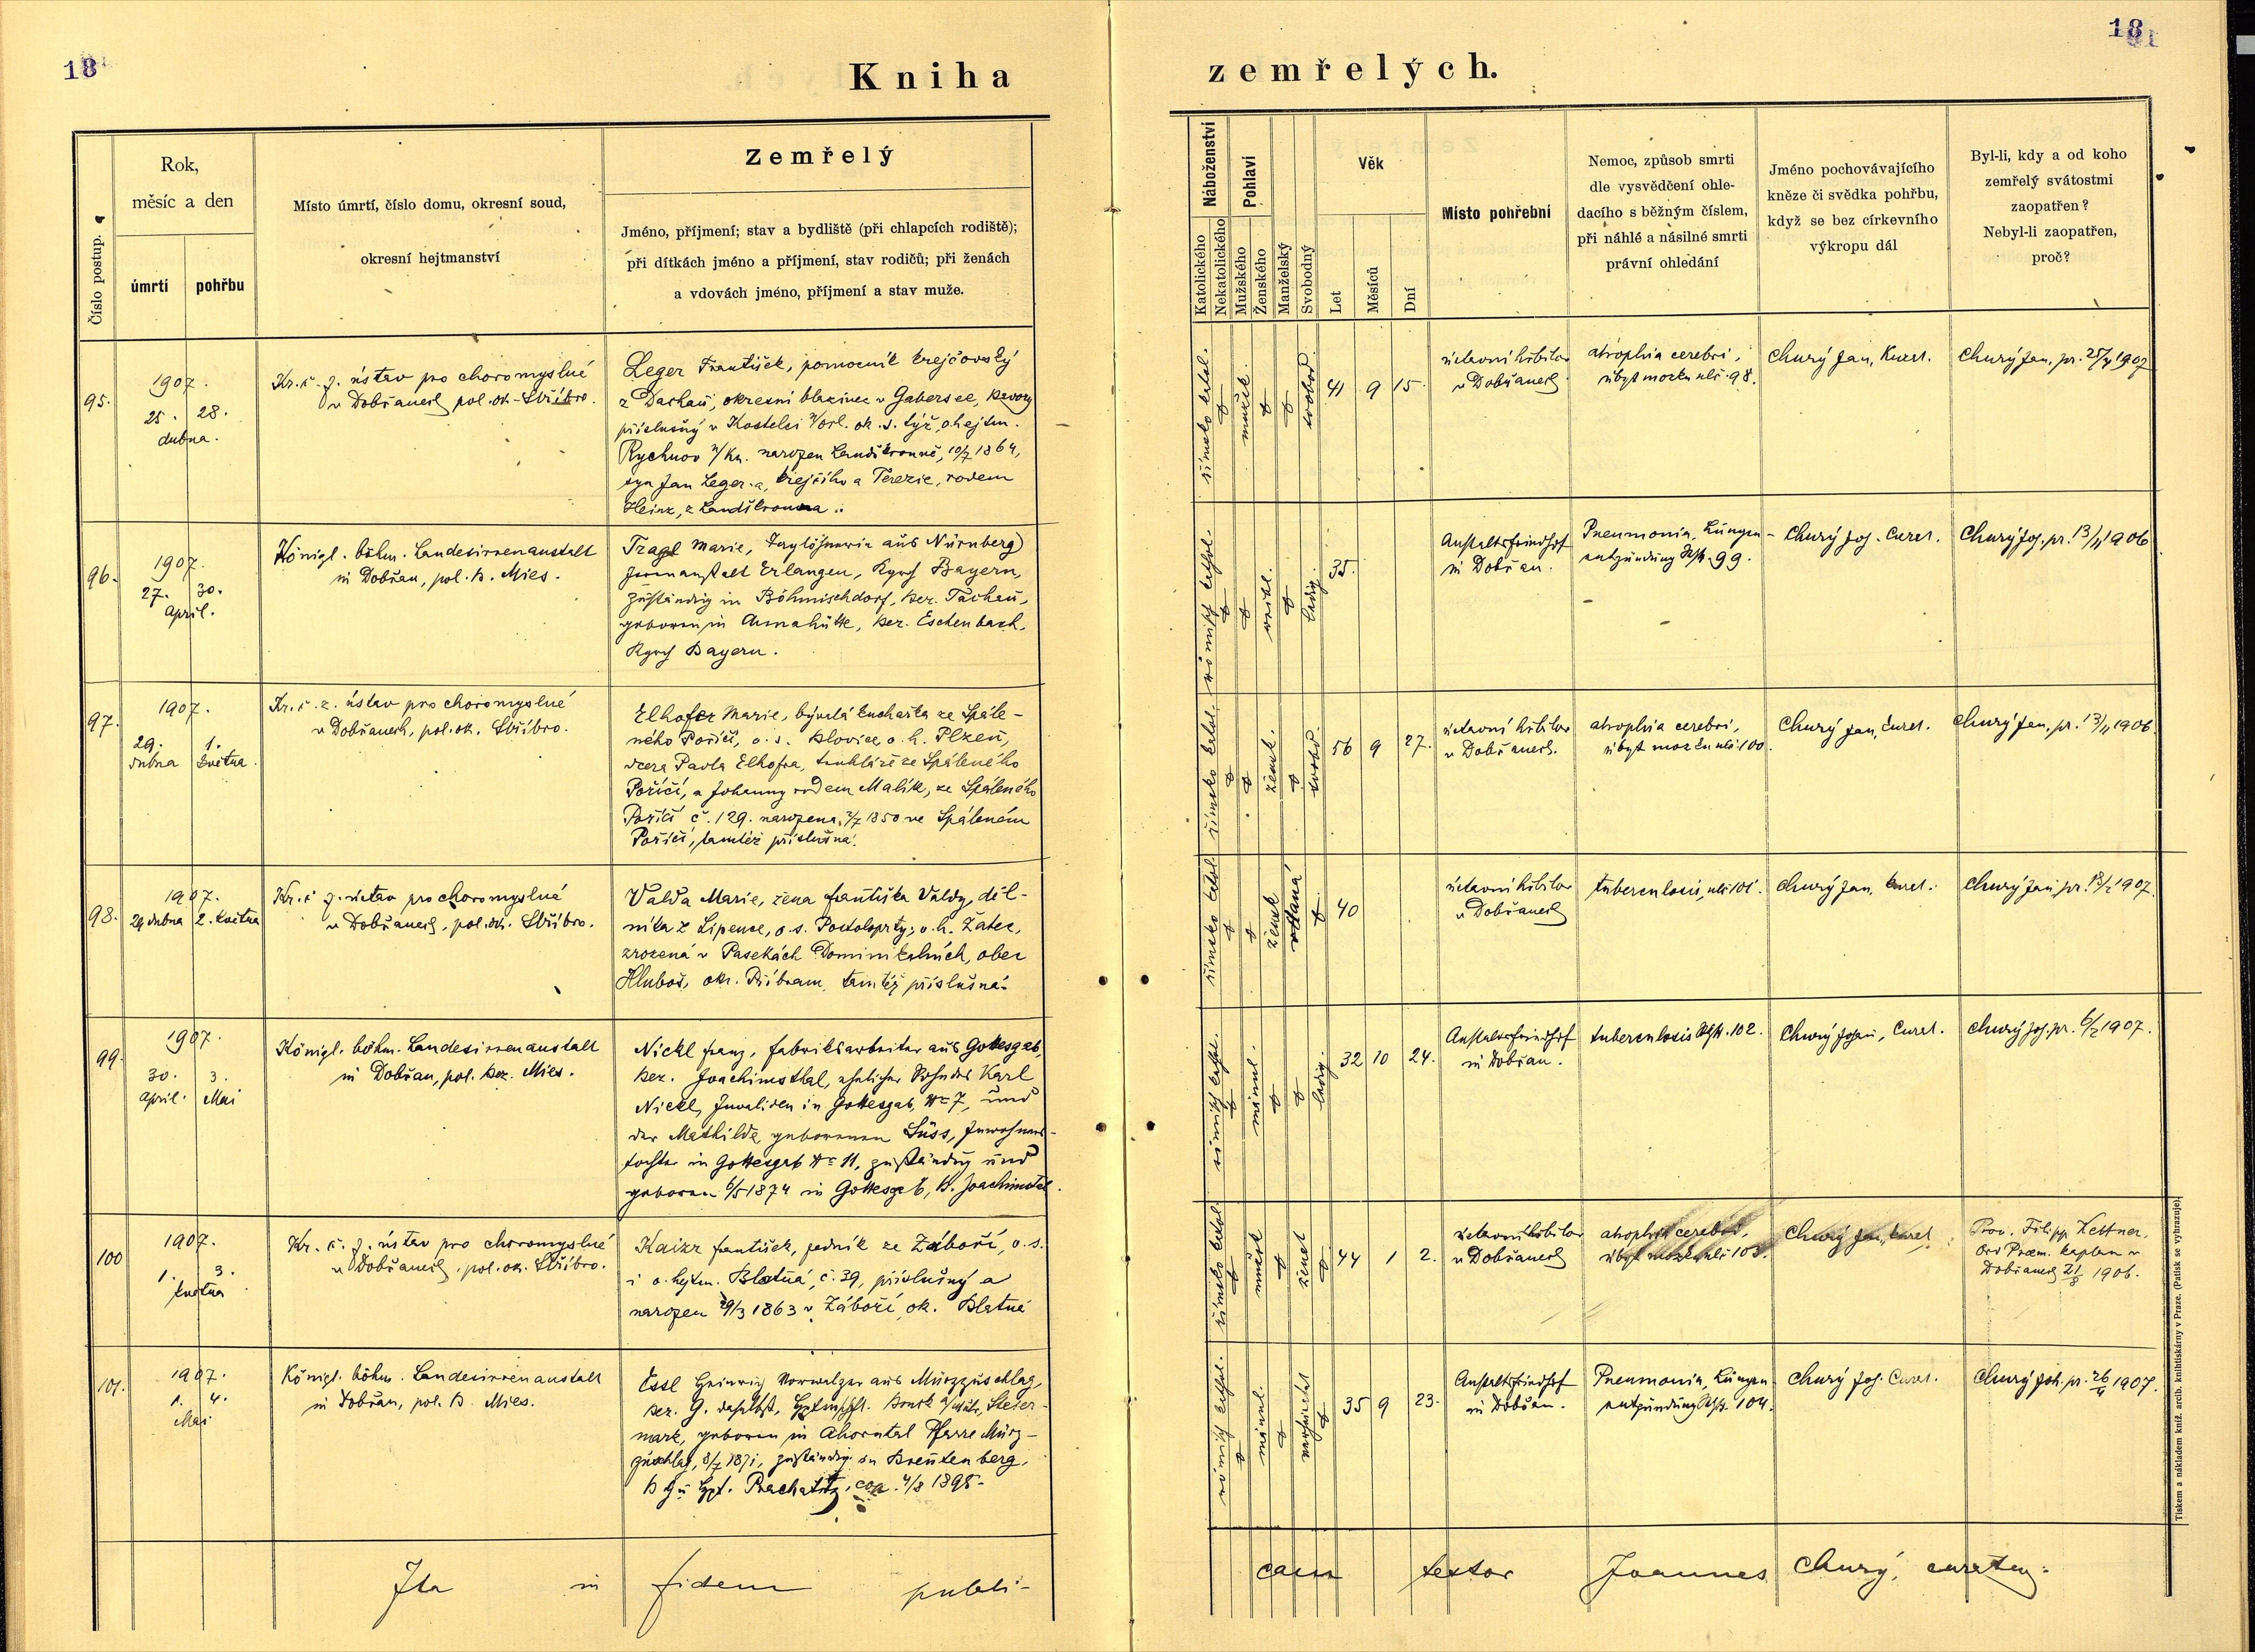 18
18
Kniha
zemřelých.
Číslo postup.
Rok,
měsíc a den
úmrtí
pohřbu
Místo úmrtí, číslo domu, okresní soud,
okresní hejtmanství
Zemřelý
Jméno, příjmení; stav a bydliště (při chlapcích rodiště);
při dítkách jméno a příjmení, stav rodičů; při ženách
a vdovách jméno, příjmení a stav muže.
Náboženství
Katolického
Nekatolického
Pohlaví
Mužského
Ženského
Manželský
Svobodný
Věk
Let
Měsíců
Dní
Místo pohřební
Nemoc, způsob smrti
dle vysvědčení ohle-
dacího s běžným číslem,
při náhlé a násilné smrti
právní ohledání
Jméno pochovávajícího
kněze či svědka pohřbu,
když se bez církevního
výkropu dál
Byl-li, kdy a od koho
zemřelý svátostmi
zaopatřen?
Nebyl-li zaopatřen,
proč?
95.
1907.
25. 28.
dubna.
Kr. č. z. ústav pro choromyslné
v Dobřanech pol. ok. Stříbro.
Leger František, pomocník krejčovský
z Dachau, okresní blázinec v Gabersee, Bavory
příslušný v Kostelci n/Orl. ok. s. týž, o. hejtm.
Rychnov n/Kn. narozen Landškrouně, 10/7 1864,
syn Jan Leger-a, krejčího a Terezie, rodem
Heinz, z Landškrouna.
římsko katol.
mužsk.
svobod.
41 9 15.
ústavní hřbitov
v Dobřanech.
atrophia cerebri,
úbyt mozku čís. 98.
Churý Jan, kurat.
Churý Jan, pr. 25/4 1907
96.
1907.
27. 30.
April.
Königl. böhm. Landesirrenanstalt
in Dobřan, pol. B. Mies.
Tragl Marie, Taglöhnerin aus Nürnberg
Irrenanstalt Erlangen, Kgrch Bayern,
zuständig in Böhmischdorf, Bez. Tachau,
geboren in Annahütte, Bez. Eschenbach,
Kgrch Bayern.
römisch kathol.
weibl.
ledig.
35.
Anstaltsfriedhof
in Dobřan.
Pneumonia, Lungen-
entzündung 99.
Churý Joh. Curat.
Churý Joh. pr. 13/11 1906
97.
1907.
29. 1.
dubna května.
Kr. č. z. ústav pro choromyslné
v Dobřanech, pol. ok. Stříbro.
Elhofer Marie, bývalá kuchařka ze Spále-
ného Poříčí, o. s. Blovice, o. h. Plzeň,
dcera Pavla Elhofra, truhláře ze Spáleného
Poříčí, a Johanny rodem Malík, ze Spáleného
Poříčí č. 129. narozena 2/7 1850 ve Spáleném
Poříčí, tamtéž příslušná.
římsko katol.
žensk.
svobod.
56 9 27.
ústavní hřbitov
v Dobřanech.
atrophia cerebri,
úbyt mozku čís. 100.
Churý Jan, curat.
Churý Jan, pr. 13/11 1906
98.
1907.
29 dubna 2. května
Kr. č. z. ústav pro choromyslné
v Dobřanech, pol. ok. Stříbro.
Valda Marie, žena Františka Valdy, děl-
níka z Lipence, o. s. Postoloprty, o. h. Žatec,
zrozená v Pasekách Dominikalních, obec
Hluboš, okr. Příbram, tamtéž příslušná.
římsko katol.
žensk
vdaná
40
ústavní hřbitov
v Dobřanech
tuberculosis, čís. 101.
Churý Jan, kurat.
Churý Jan, pr. 13/2 1907.
99.
1907.
30. 3.
April. Mai
Königl. böhm. Landesirrenanstalt
in Dobřan, pol. Bez. Mies.
Nickl Franz, Fabriksarbeiter aus Gottesgab,
Bez. Joachimsthal, ehelicher Sohn des Karl
Nickl, Invaliden in Gottesgab, № 7, und
der Mathilde, geborenen Süss, Inwohners-
tochter in Gottesgab № 11, zuständig und
geboren 6/5 1874 in Gottesgab, B. Joachimstal.
römisch kathol.
männl.
ledig.
32 10 24.
Anstaltsfriedhof
in Dobřan.
tuberculosis 102.
Churý Johan, Curat.
Churý Joh. pr. 6/2 1907.
100
1907.
1. 3.
května
Kr. č. z. ústav pro choromyslné
v Dobřanech, pol. ok. Stříbro.
Kaizr František, podník ze Záboří, o. s.
i o. hejtm. Blatná, č. 39, příslušný a
narozen 29/3 1863 v Záboří, ok. Blatná
římsko katol.
mužsk
ženat
44 1 2.
ústavní hřbitov
v Dobřanech
atrophia cerebri,
úbyt mozku čís 103.
Churý Jan, kurat
Prov. Filipp Kettner,
Ord Praem. kaplan v
Dobřanech 21/8 1906.
101.
1907.
1. 4.
Mai
Königl. böhm. Landesirrenanstalt
in Dobřan, pol. B. Mies.
Essl Heinrich Vorwalzer aus Mürzzuschlag,
Bez. G. daselbst, Bruck a/Mur, Steier-
mark, geboren in Ahorntal Pfarre Mürz-
zuschlag, 8/7 1871, zuständig in Breütenberg,
B. G. Hpt. Prachatitz, cop. 4/8 1895.
römisch kathol.
männl.
verheiratet
35 9 23.
Anstaltsfriedhof
in Dobřan.
Pneumonia, Lungen
entzündung 104.
Churý Joh. Curat.
Churý Joh. pr. 26/4 1907.
Ita in fidem publi-
cam testor Joannes Churý, curatus.
Tiskem a nákladem kníž. arcib. knihtiskárny v Praze. (Patisk se vyhrazuje).